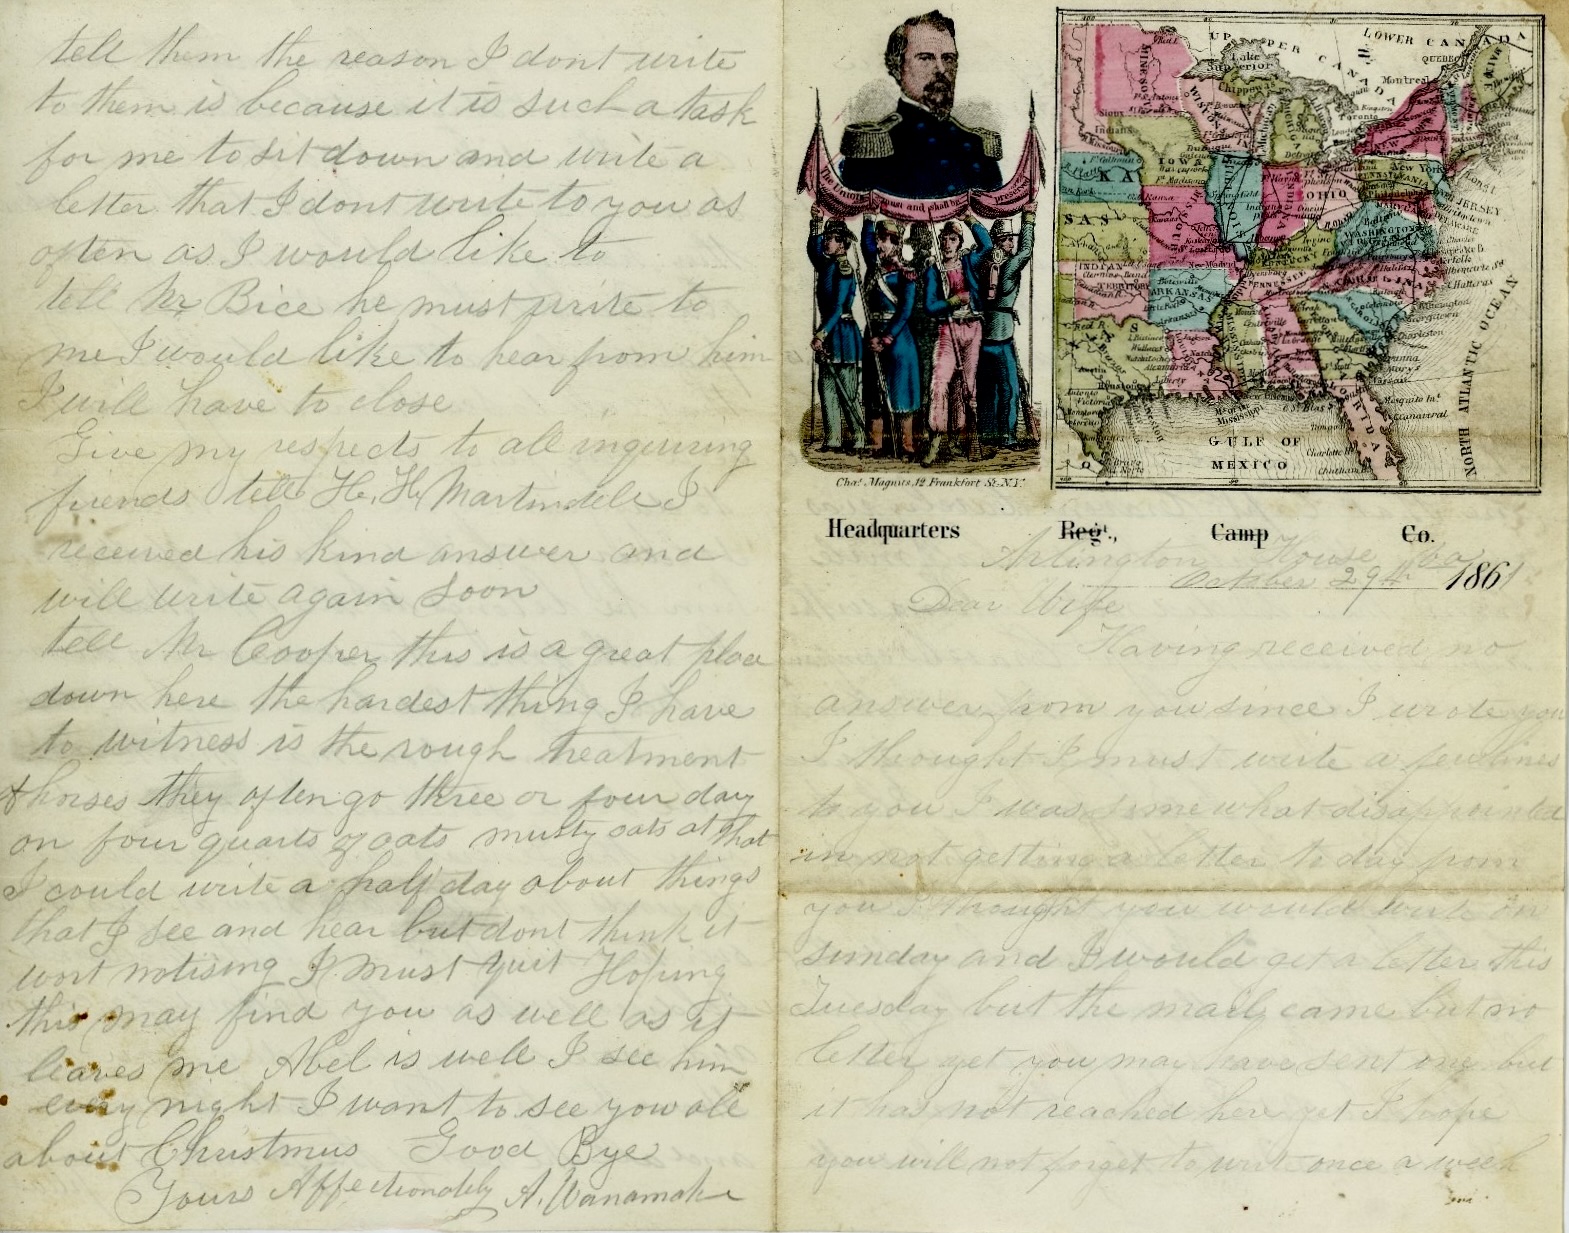 The Union must and shall be preserved
Chas. Magnus, 12 Frankfort St. N.Y.
UPPER CANADA
LOWER CANADA
QUEBEC
Montreal
Lake Superior
Chippewas
Toronto
MINESOTA
WISCONSIN
Sioux
Indians
IOWA
NEW YORK
New York
PENNSYLVANIA
N. JERSEY
DELAWARE
OHIO
INDIANA
ILLINOIS
KANSAS
MISSOURI
WASHINGTON
KENTUCKY
TENNESSEE
N. CAROLINA
C. Hatteras
Wilmington
Georgetown
Charleston
INDIAN TERRITORY
ARKANSAS
TEXAS
Austin
Houston
Liberty
FLORIDA
Mosquito In.
C. Canaveral
GULF OF MEXICO
NORTH ATLANTIC OCEAN
Headquarters Regt., Camp Co.
Arlington House Va
October 29th 1861
Dear Wife
Having received no
answer from you since I wrote you
I thought I must write a few lines
to you I was somewhat disappointed
in not getting a letter to day from
you I thought you would write on
sunday and I would get a letter this
Tuesday but the mail came but no
letter yet you may have sent one but
it has not reached here yet I hope
you will not forget to write once a week
tell them the reason I dont write
to them is because it is such a task
for me to sit down and write a
letter that I dont write to you as
often as I would like to
tell Mr Bice he must write to
me I would like to hear from him
I will have to close
Give my respects to all inquiring
friends tell H. H. Martindell I
received his kind answer and
will write again soon
tell Mr Cooper this is a great place
down here the hardest thing I have
to witness is the rough treatment
of horses they often go three or four day
on four quarts of oats musty oats at that
I could write a half day about things
that I see and hear but dont think it
wort notising I must quit Hoping
this may find you as well as it
leaves me Abel is well I see him
every night I want to see you all
about Christmus Good Bye
Yours Affectionately A. Wanamaker